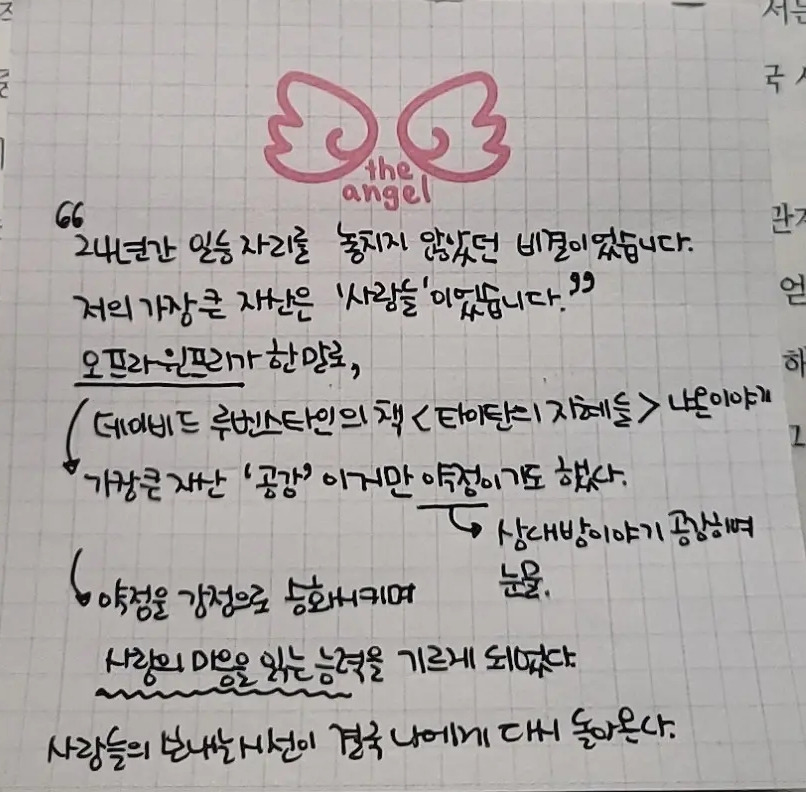 the
angel
“
24년간 일등 자리를 놓치지 않았던 비결이었습니다.
저의 가장 큰 재산은 '사람들'이었습니다.”
오프라윈프리가 한 말로,
데이비드 루벤스타인의 책 <타이탄의 지혜들> 나온이야기
가장큰 재산 '공감'이지만 약점이기도 했다.
상대방이야기 공감하며
눈물.
약점을 강점으로 승화시키며
사람의 마음을 읽는 능력을 기르게 되었다
사람들의 보내는시선이 결국 나에게 다시 돌아온다.
서는
국
관
얻
하
그